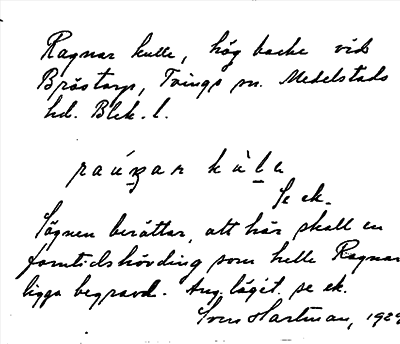 Ragnar kulle, hög backe vid
Bröstorp, Tvings sn. Medelstads
hd. Blek. l.
Se ek.
Sägnen berättar, att här skall en
forntidshövding som hette Ragnar
ligga begravd. Ang. läget. se ek.
Sven Hartman, 192